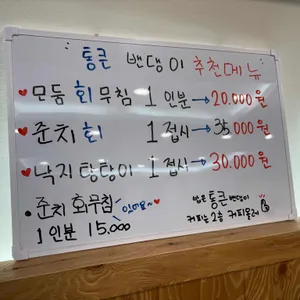 통큰 밴댕이 추천메뉴
♥모듬 회 무침 1 인분→20.000원
•준치회 1 접시→35.000원
♥낙지 탕탕이 - 1 접시→30.000원
•준치 회무침 있어요~♥
1 인분 15.000
통큰 밴댕이
커피는 2층 커피볼래